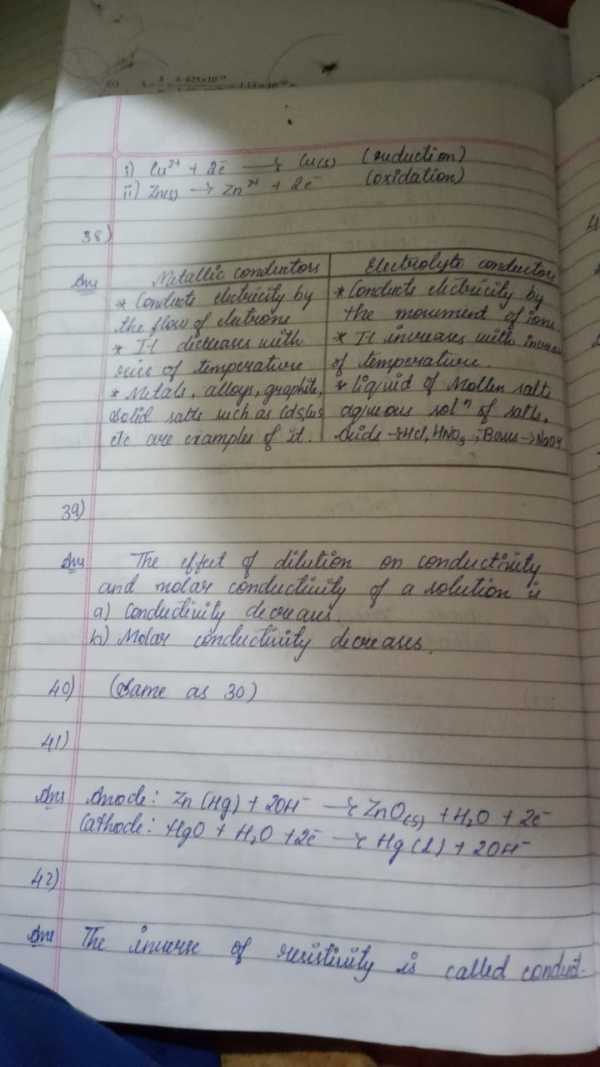 i) Cu²⁺ + 2e⁻ → Cu(s) (reduction)
ii) Zn(s) → Zn²⁺ + 2e⁻ (oxidation)
38)
Ans
Metallic conductors
* Conducts electricity by
the flow of electrons
* It decreases with
rise of temperature
* Metals, alloys, graphite,
solid salts such as CdS, CuS
etc are examples of it.
Electrolyte conductors
* Conducts electricity by
the movement of ions
* It increases with increase
of temperature.
* liquid of Molten salts
aqueous solⁿ of salts,
Acids → HCl, HNO₃; Bases → NaOH
39)
Ans The effect of dilution on conductivity
and molar conductivity of a solution is
a) Conductivity decreases.
b) Molar conductivity decreases.
40) (Same as 30)
41)
Ans Anode: Zn(Hg) + 2OH⁻ → ZnO(s) + H₂O + 2e⁻
Cathode: HgO + H₂O + 2e⁻ → Hg(l) + 2OH⁻
42)
Ans The inverse of resistivity is called conduct-